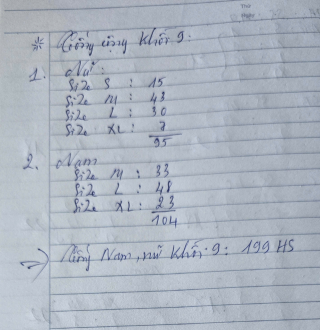 * Tổng cộng Khối 9:
1. Nữ:
Size S : 15
Size M : 43
Size L : 30
Size XL : 7
95
2. Nam
Size M : 33
Size L : 48
Size XL : 23
104
=> Tổng Nam, nữ Khối 9: 199 HS